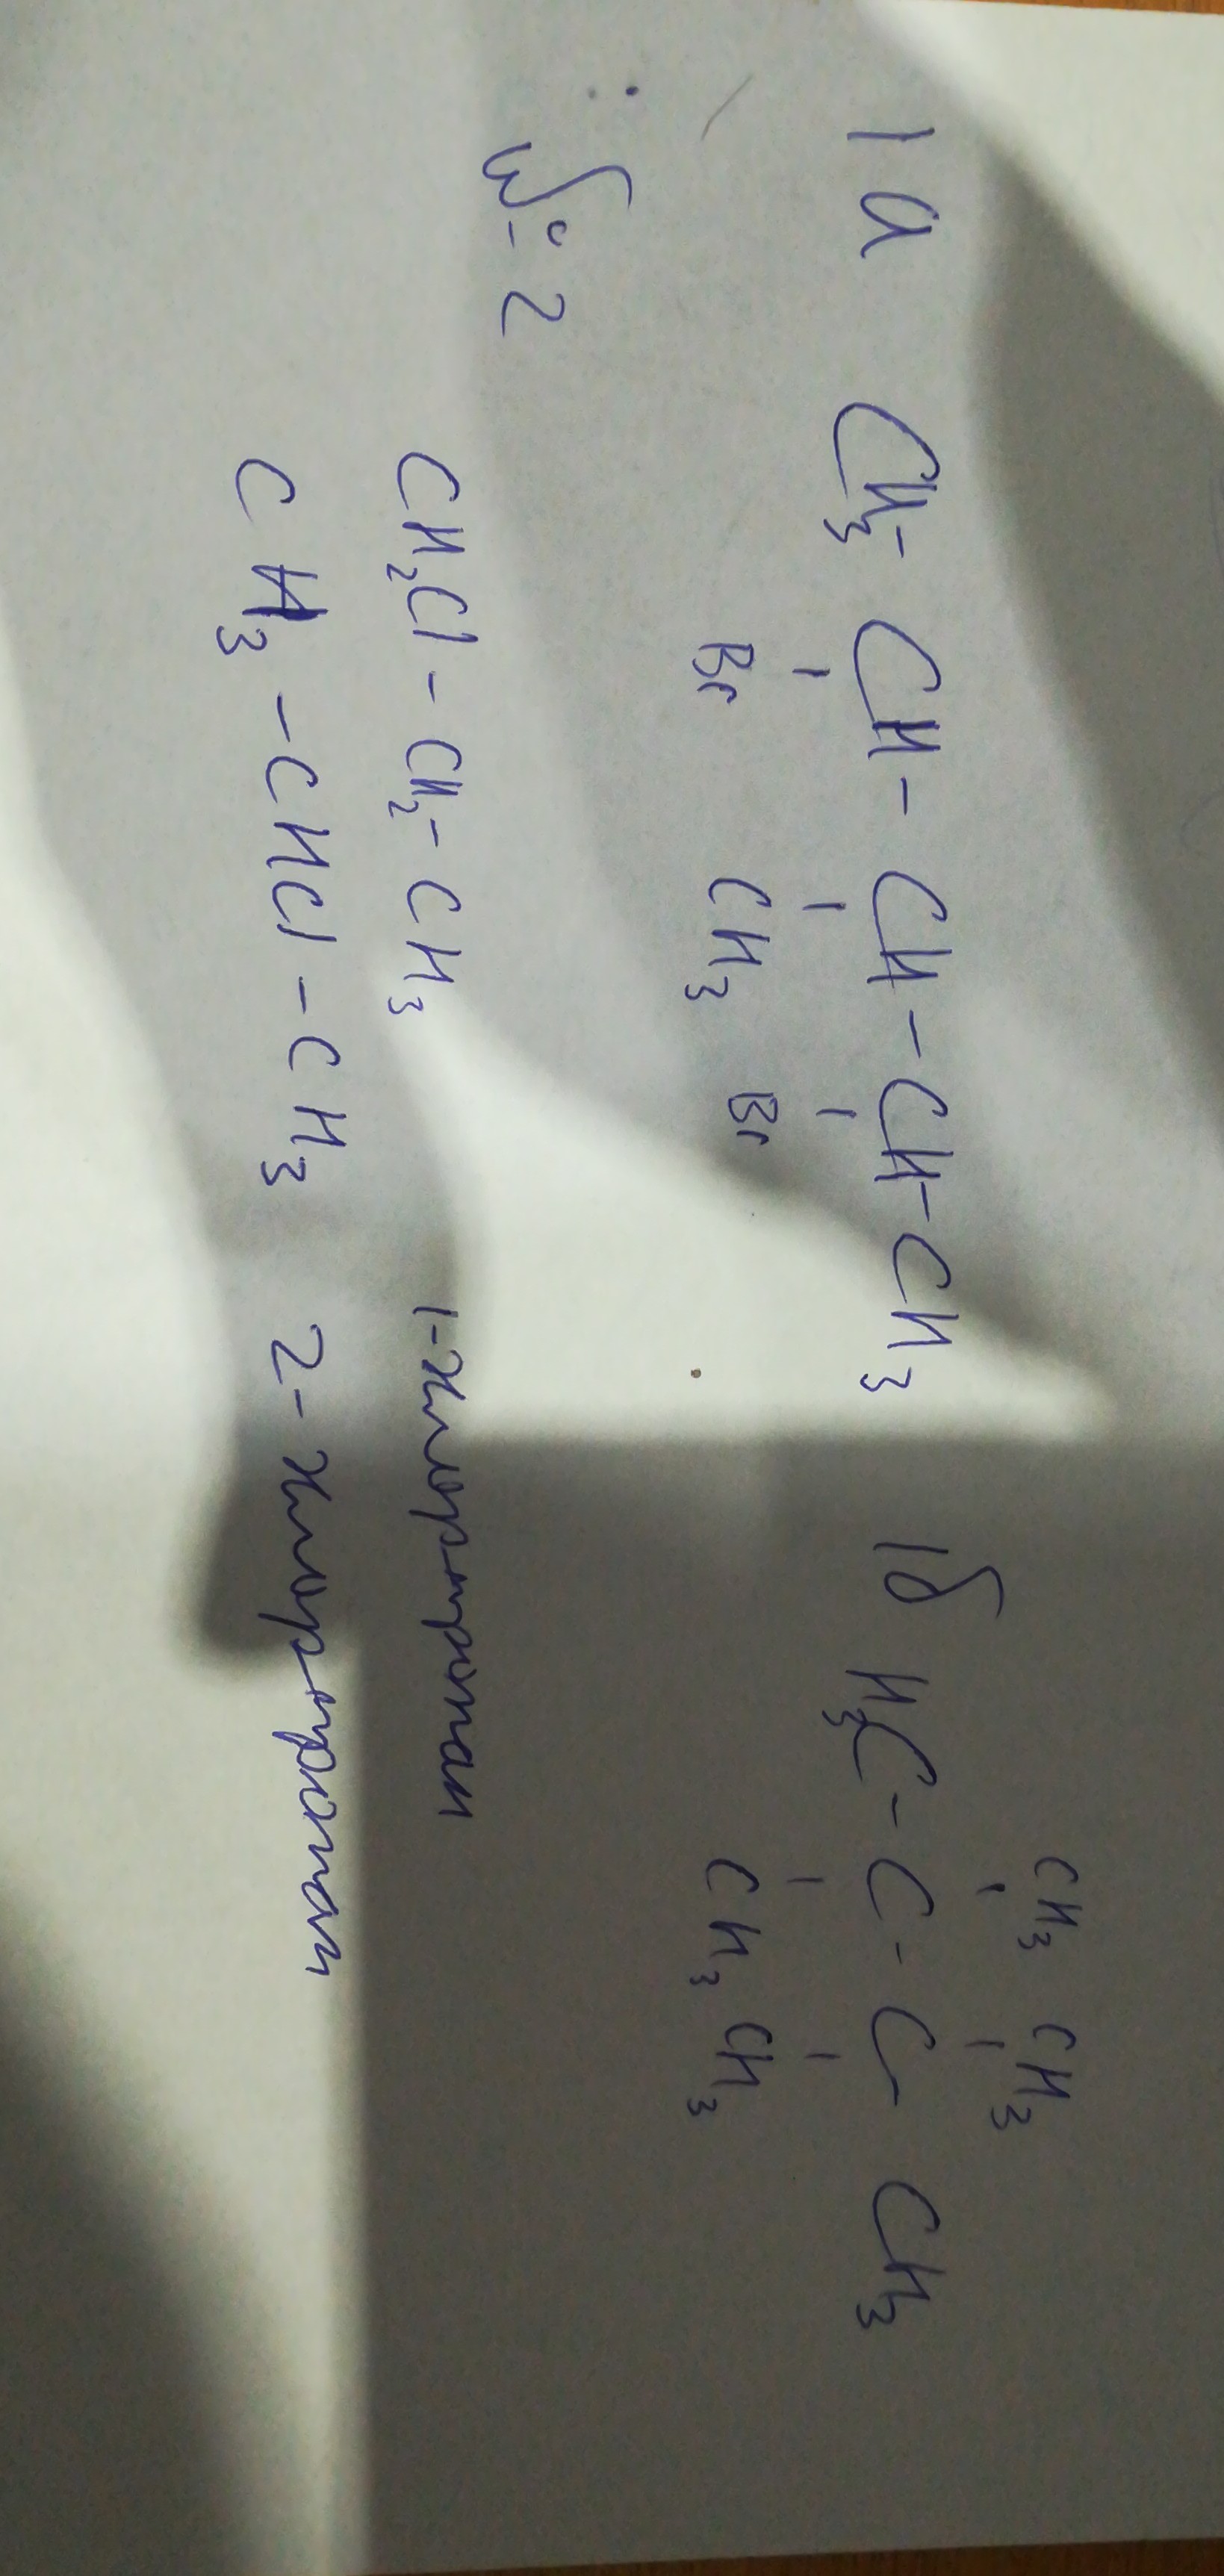 CH3 CH3
1а CH3- CH - CH - CH - CH3 1б H3C - C - C - CH3
Br CH3 Br CH3 CH3
№ 2
CH2Cl - CH2 - CH3 1-хлорпропан
CH3 - CHCl - CH3 2-хлорпропан